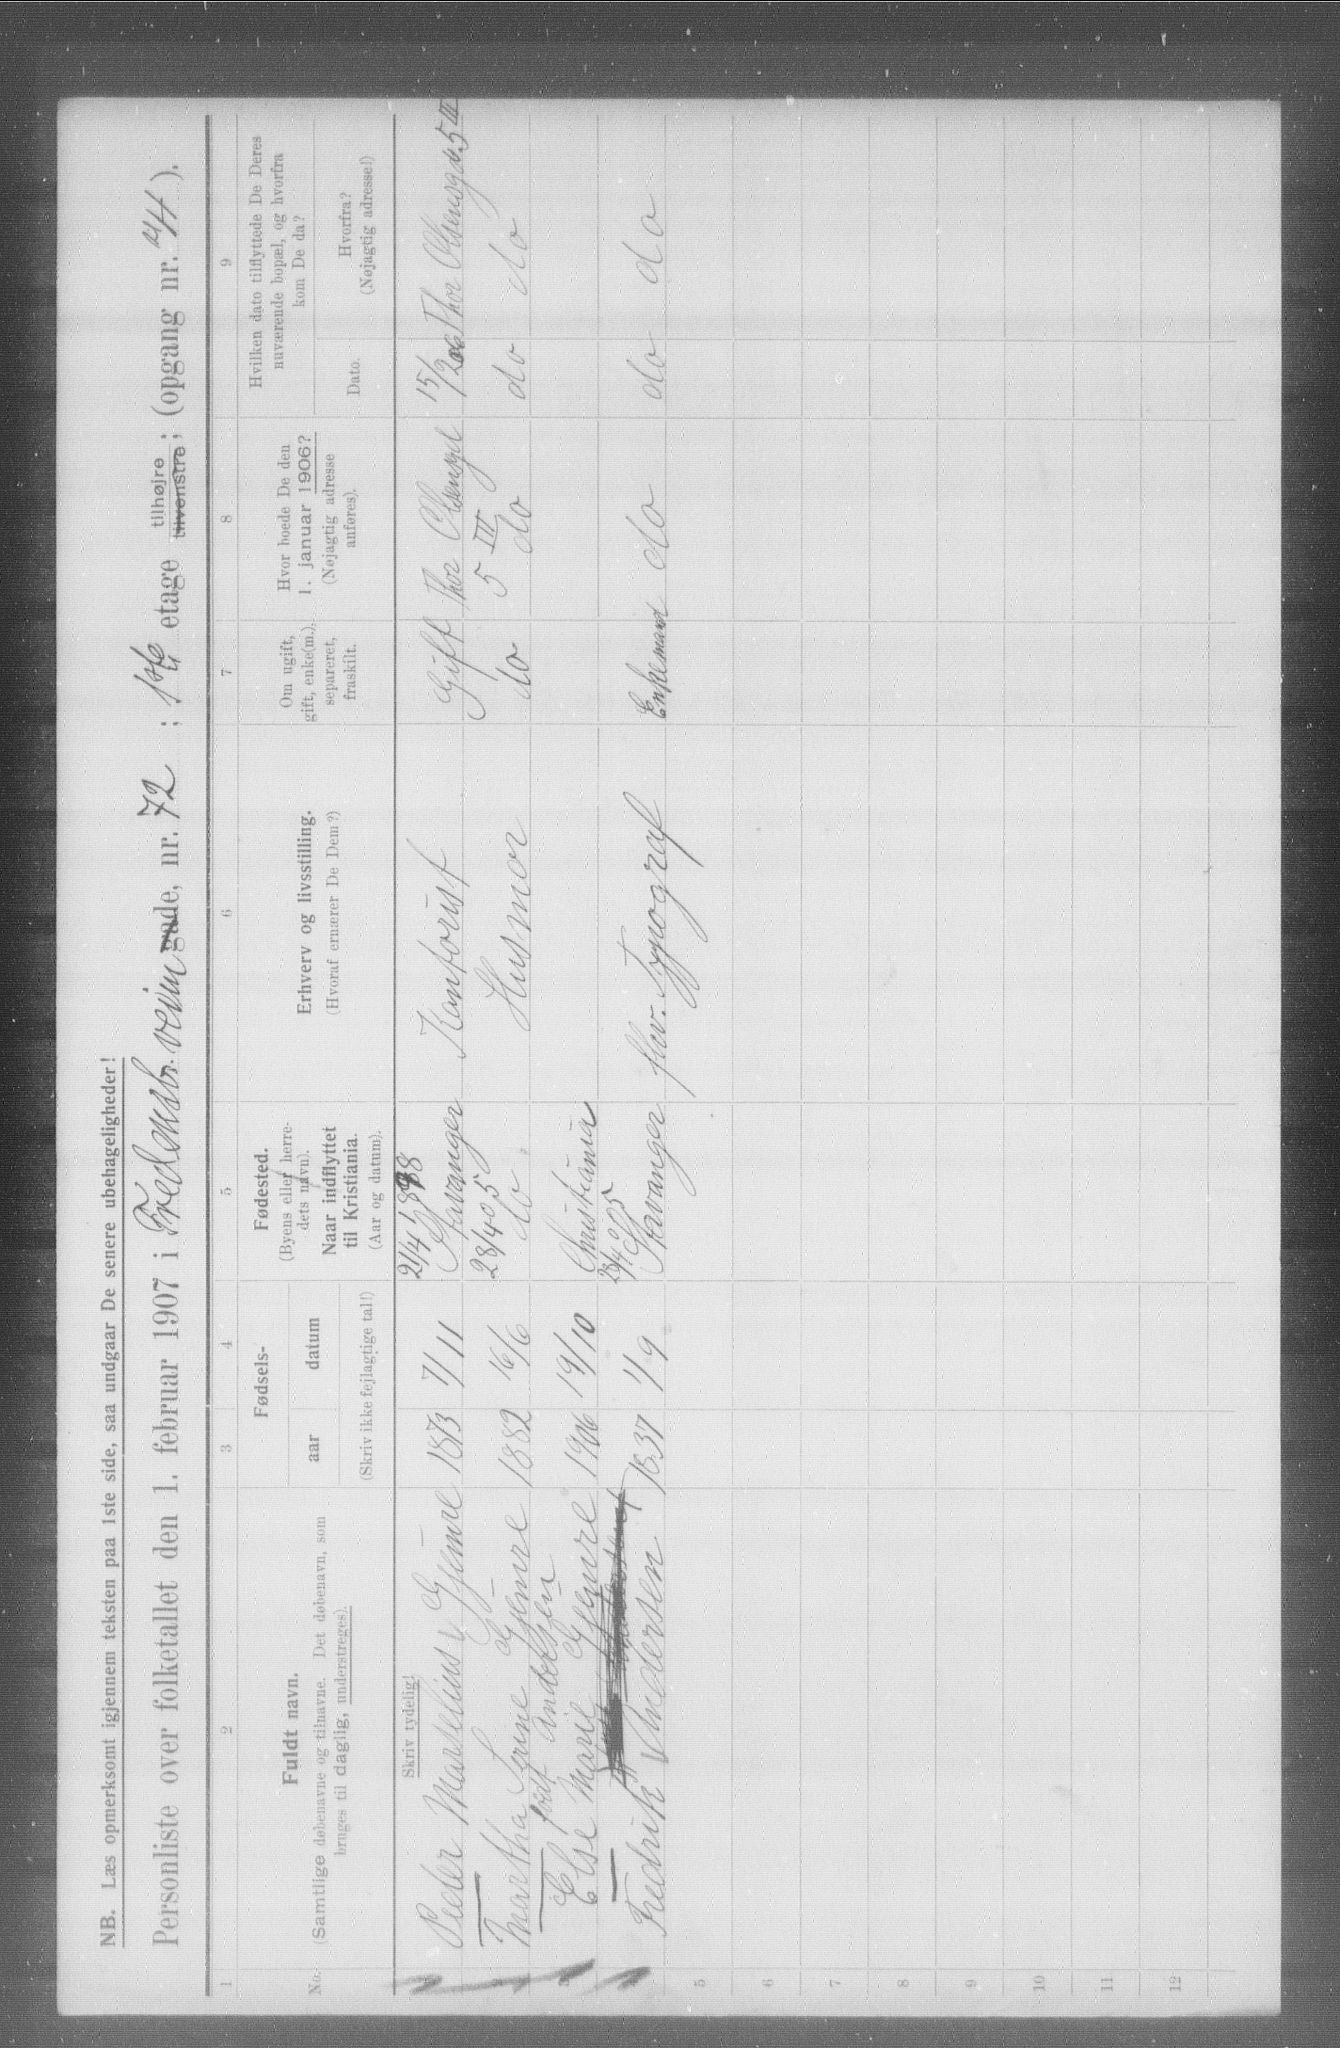 NB. Læs opmerksomt igjennem teksten paa 1ste side, saa undgaar De senere ubehageligheder!
Personliste over folketallet den 1. februar 1907 i Fredensb. veien gade, nr. 72 ; 1ste etage tilhøjre tilvenstre; (opgang nr. ).
1 2 3 4 5 6 7 8 9
No.
Fuldt navn.
(Samtlige døbenavne og tilnavne. Det døbenavn, som
bruges til daglig, understreges).
Skriv tydelig!
Fødsels-
aar datum
(Skriv ikke fejlagtige tal!)
Fødested.
(Byens eller herre-
dets navn).
Naar indflyttet
til Kristiania.
(Aar og datum).
Erhverv og livsstilling.
(Hvoraf ernærer De Dem?)
Om ugift,
gift, enke(m.),
separeret,
fraskilt.
Hvor boede De den
1. januar 1906?
(Nøjagtig adresse
anføres).
Hvilken dato tilflyttede De Deres
nuværende bopæl, og hvorfra
kom De da?
Dato.
Hvorfra?
(Nøjagtig adresse!)
21/4 1898
1 Peder Martelius Gjemre 1873 7/11 Stavanger Kontorist Gift Thor Olsensgd 5 III 15/2 06 Thor Olsensgd. 5 III
28/4 05
2 Martha Sirine Gjemre 1882 16/6 do. Husmor do do do do
født Andersen
3 Else Marie Gjemre 1906 19/10 Christiania
28/4 05
Fredrik Andersen 1837 1/9 Stavanger fhv. Typograf Enkemand do do do
5
6
7
8
9
10
11
12